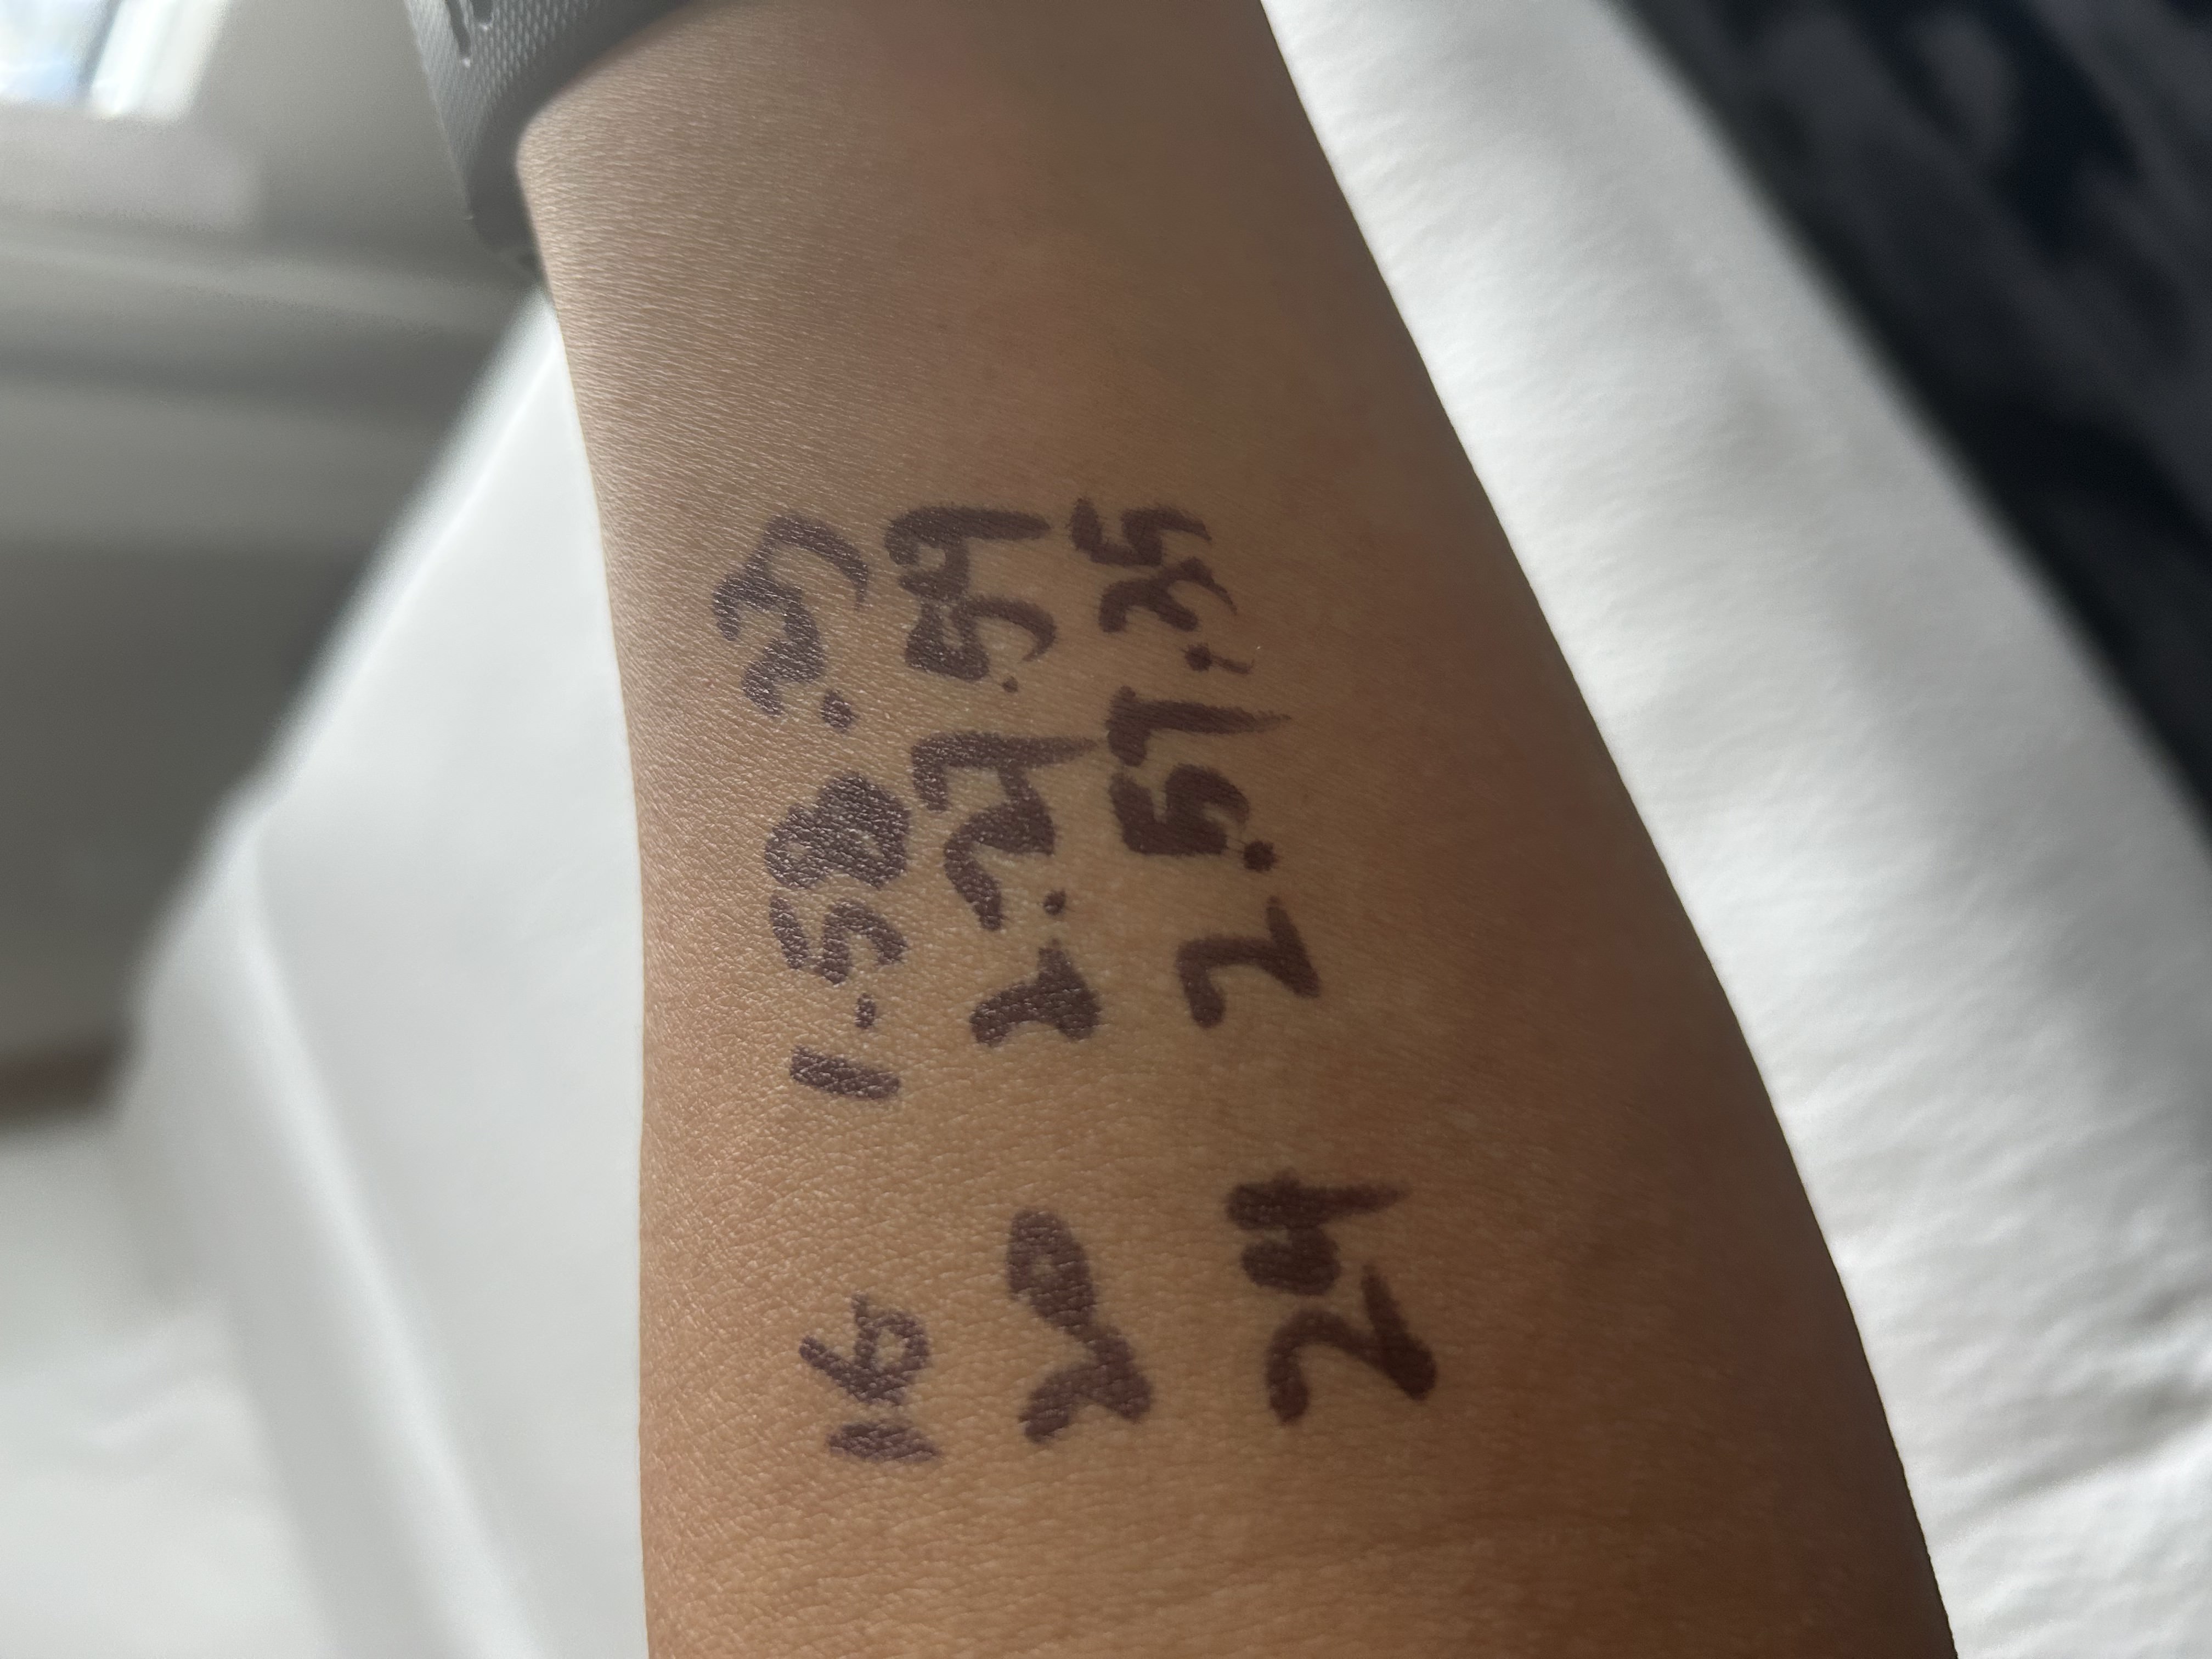 16 1.58.23
20 2.27.59
24 2.57.35